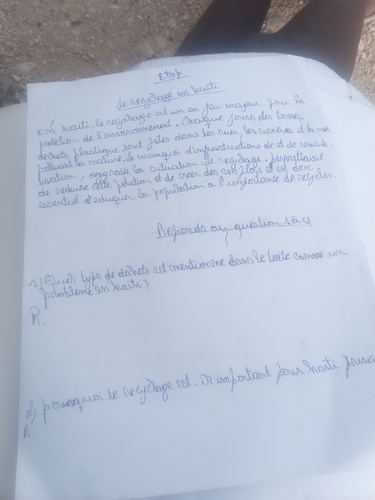 Etap
Le recyclage en haiti
En haiti le recyclage est un en jeu majeur pour la
protection de l'environnement. Chaque jours, des tones,
dechets plastique sont jetés dans les rues, les rivières et la mer
polluant la nature, le manque d'infrastructures de et de sensibi-
lisation, aggrave la situation. le recyclage permettrait
de reduire cette polution et de creer des emplois et est donc
essentiel d'eduquer la population a l'importance de recycler.
Reponds au question 1 a 4
1) Quel type de dechets est mentionne dans le texte comme un
problème en haiti?
R.
2) pourquoi le recyclage est-il important pour haiti
R.